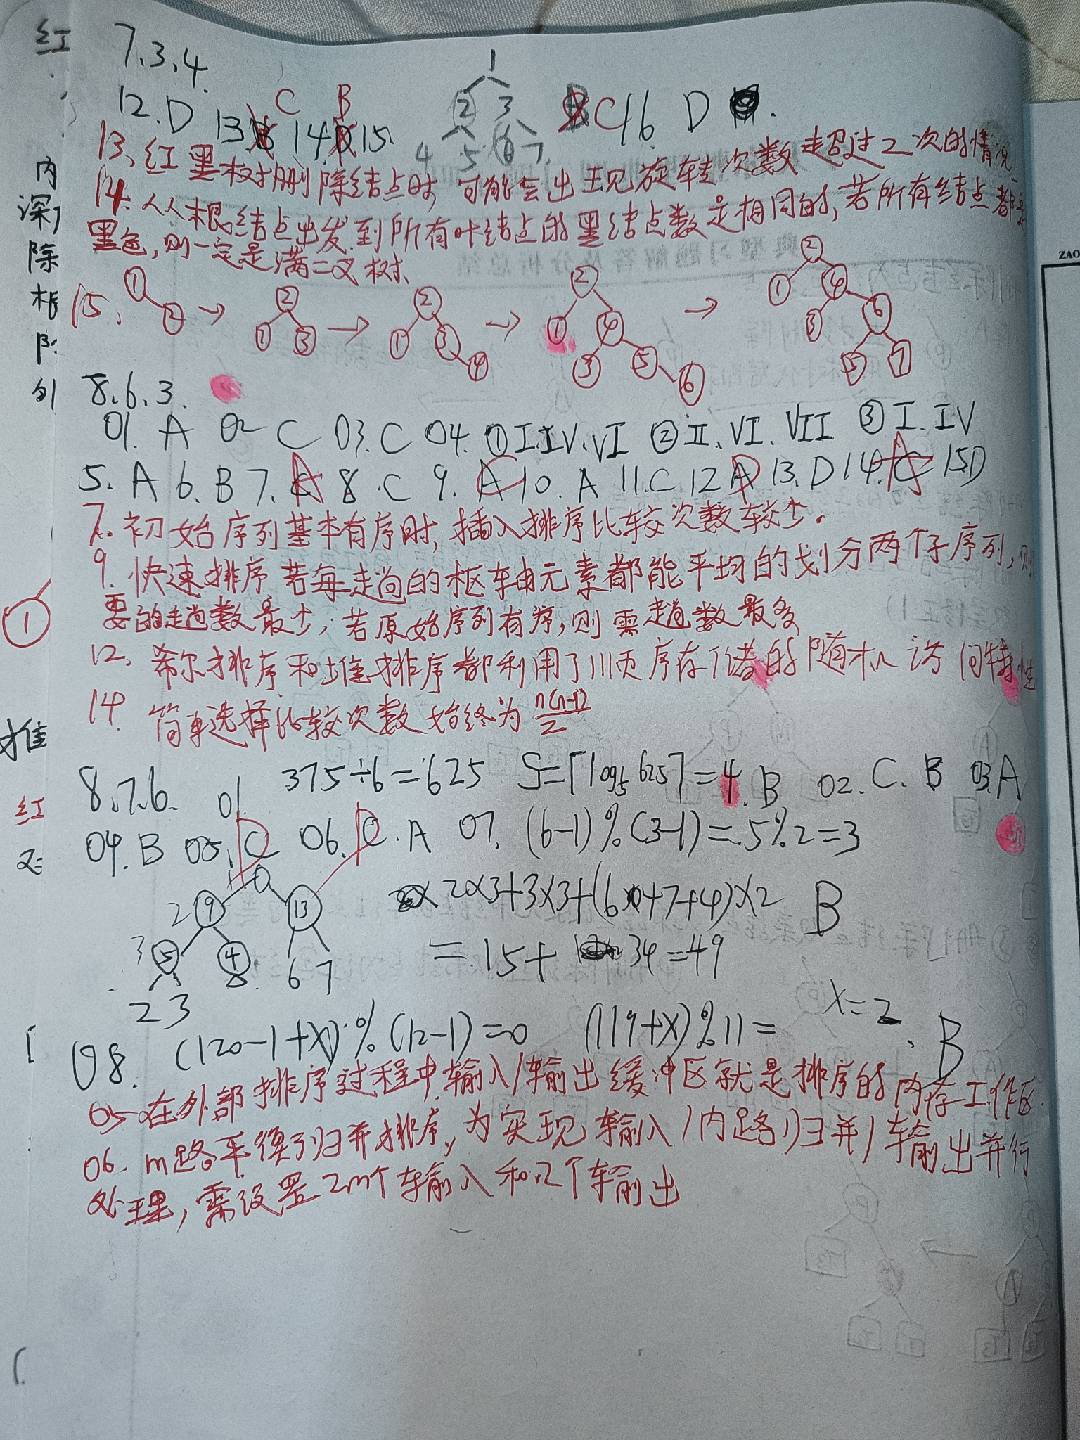 红
7.3.4.
12. D 13. C 14. B 15. C 16. D
1
2 3
4 5 6 7
13、红黑树删除结点时,可能会出现旋转次数超过2次的情况
14. 从根结点出发到所有叶结点的黑结点数是相同的,若所有结点都是
黑色,则一定是满二叉树
15. ① ② → ② ① ③ → ② ① ③ ④ → ② ① ④ ③ ⑤ ⑥ → ② ① ④ ③ ⑥ ⑤ ⑦
内
深
除
根
队
列
8.6.3.
01. A 02 C 03. C 04. ① I. IV. VI ② II. VI. VII ③ I. IV
5. A 6. B 7. A 8. C 9. C 10. A 11. C 12 D 13. D 14. A 15 D
7. 初始序列基本有序时,插入排序比较次数较少。
9. 快速排序若每趟的枢轴元素都能平均的划分两个子序列,则
要的趟数最少,若原始序列有序,则需趟数最多
①
12. 希尔排序和堆排序都利用了顺序存储的随机访问特性
14. 简单选择比较次数始终为 n(n-1)/2
堆
红
又
8.7.6. 01 375÷6=625 S=⌈log5 625⌉=4. B 02. C. B 03. A
04. B 05. D 06. C. A 07. (6-1)%(3-1)=5%2=3
2 9 13
3 5 4 6 7
2 3
2×3+3×3+(6+7+4)×2 B
=15+34=49
08. (120-1+X)%(12-1)=0 (119+X)%11= X=2. B
05 在外部排序过程中输入/输出缓冲区就是排序的内存工作区.
06. m路平衡归并排序,为实现输入/内路归并/输出并行
处理,需设置2m个输入和2个输出